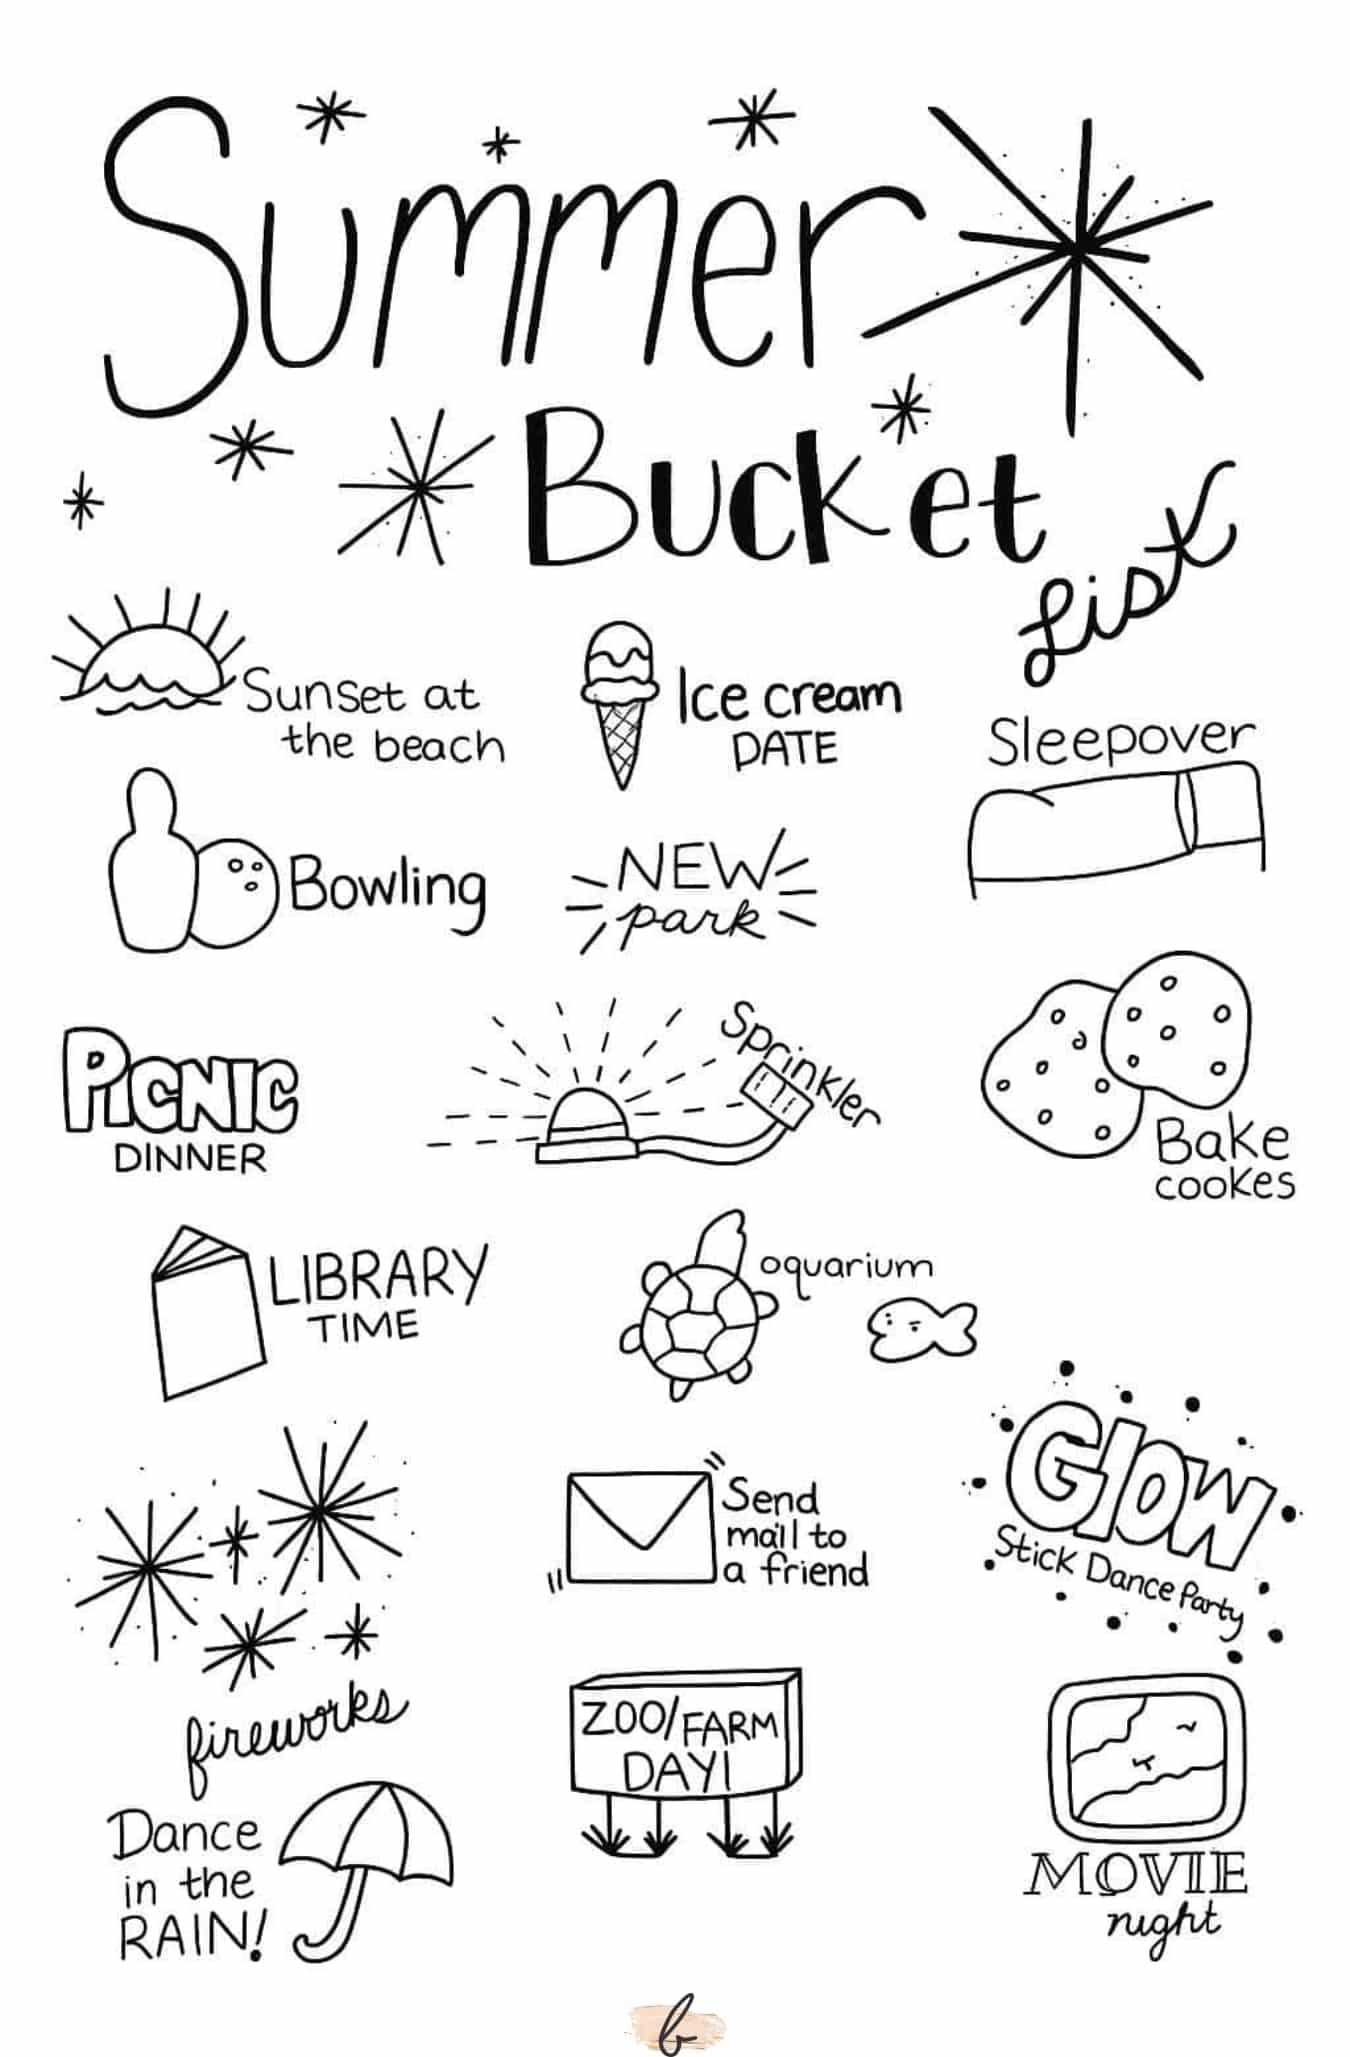 Summer
Bucket
List
Sunset at
the beach
Ice cream
DATE
Sleepover
Bowling
NEW
park
PICNIC
DINNER
Sprinkler
Bake
cookes
LIBRARY
TIME
oquarium
fireworks
Send
mail to
a friend
Glow
Stick Dance Party
Dance
in the
RAIN!
ZOO/FARM
DAY!
MOVIE
night
b